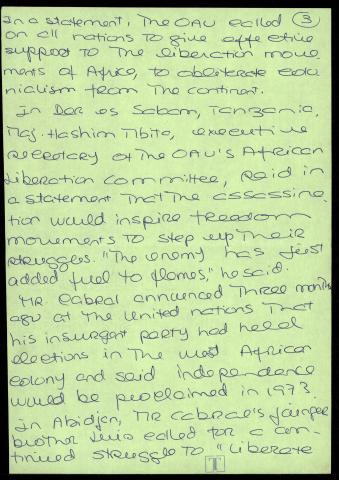 In a statement, The OAU called (3)
on all nations to give effective
support to The liberation move
ments of Africa, to obliterate colo
nialism from The continent.
In Dar es Salam, Tanzania,
Maj. Hashim Mbita, executive
secretary of The OAU's African
Liberation Committee, said in
a statement That The assassina
tion would inspire freedom
movements to step up Their
struggles. "The enemy has just
added fuel to flames," he said.
Mr Cabral announced Three months
ago at The United nations That
his insurgent party had held
elections in The West African
colony and said independence
would be proclaimed in 1973.
In Abidjan, Mr Cabral's younger
brother Luis called for a con
tinued struggle to "liberate
T